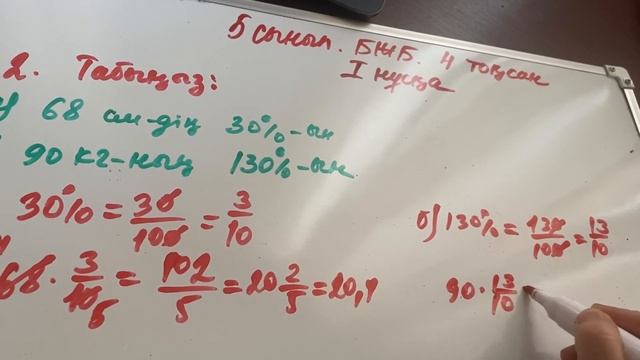 5 сынып. БЖБ. 4 тоқсан
I нұсқа
2. Табыңыз:
) 68 см-дің 30%-ын
90 кг-ның 130%-ын
30% = 30/100 = 3/10
68 · 3/10 5 = 102/5 = 20 2/5 = 20,4
б) 130% = 130/100 = 13/10
90 · 13/10